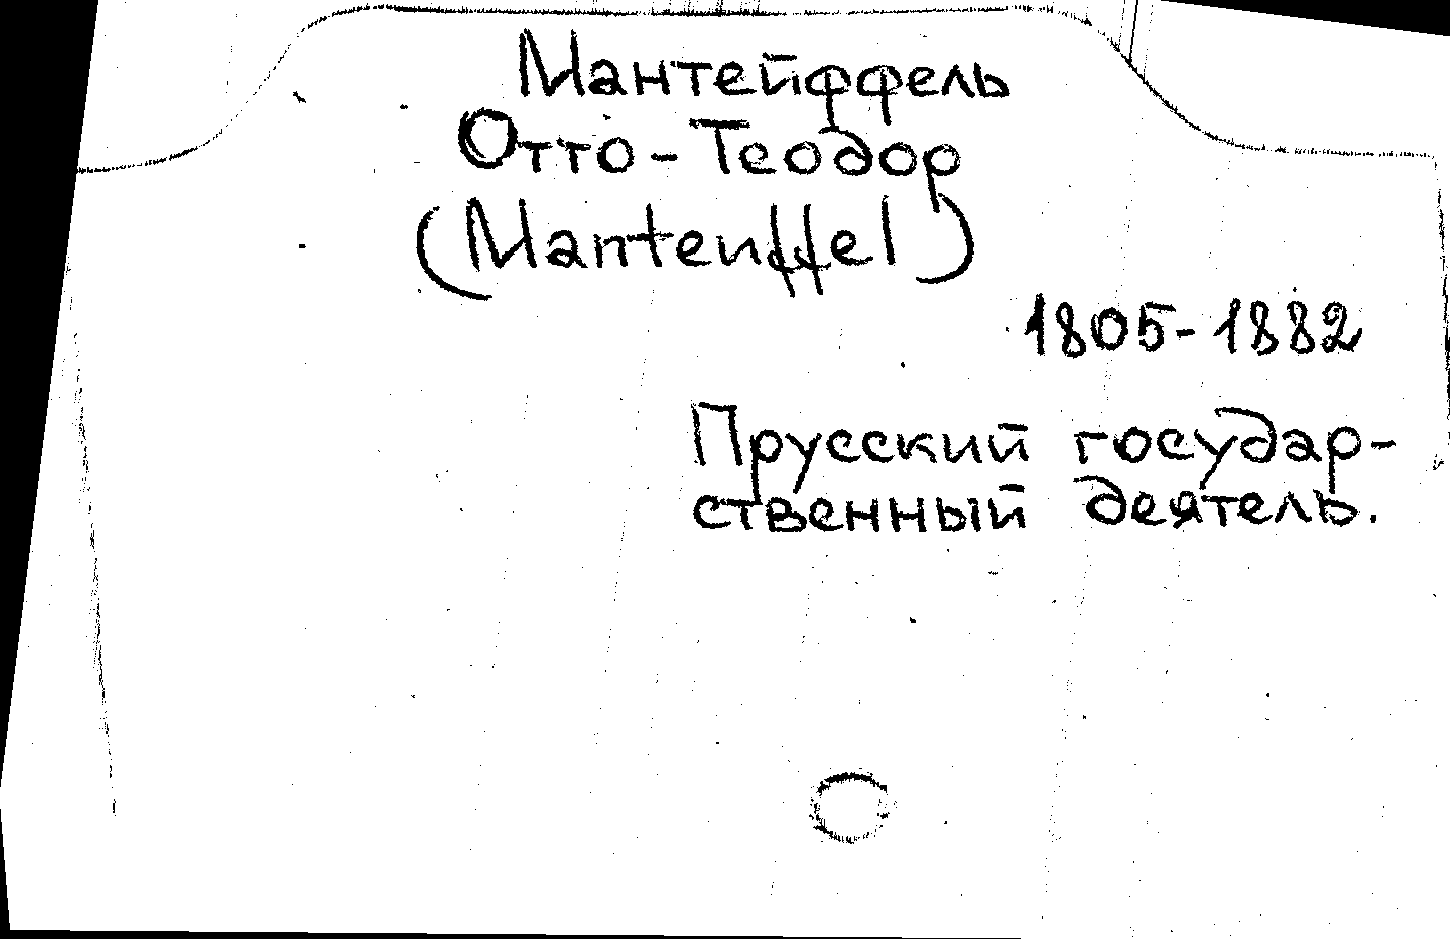 Мантейффель
Отто-Теодор
(Manteuffel)
1805-1882
Прусский государ-
ственный деятель.